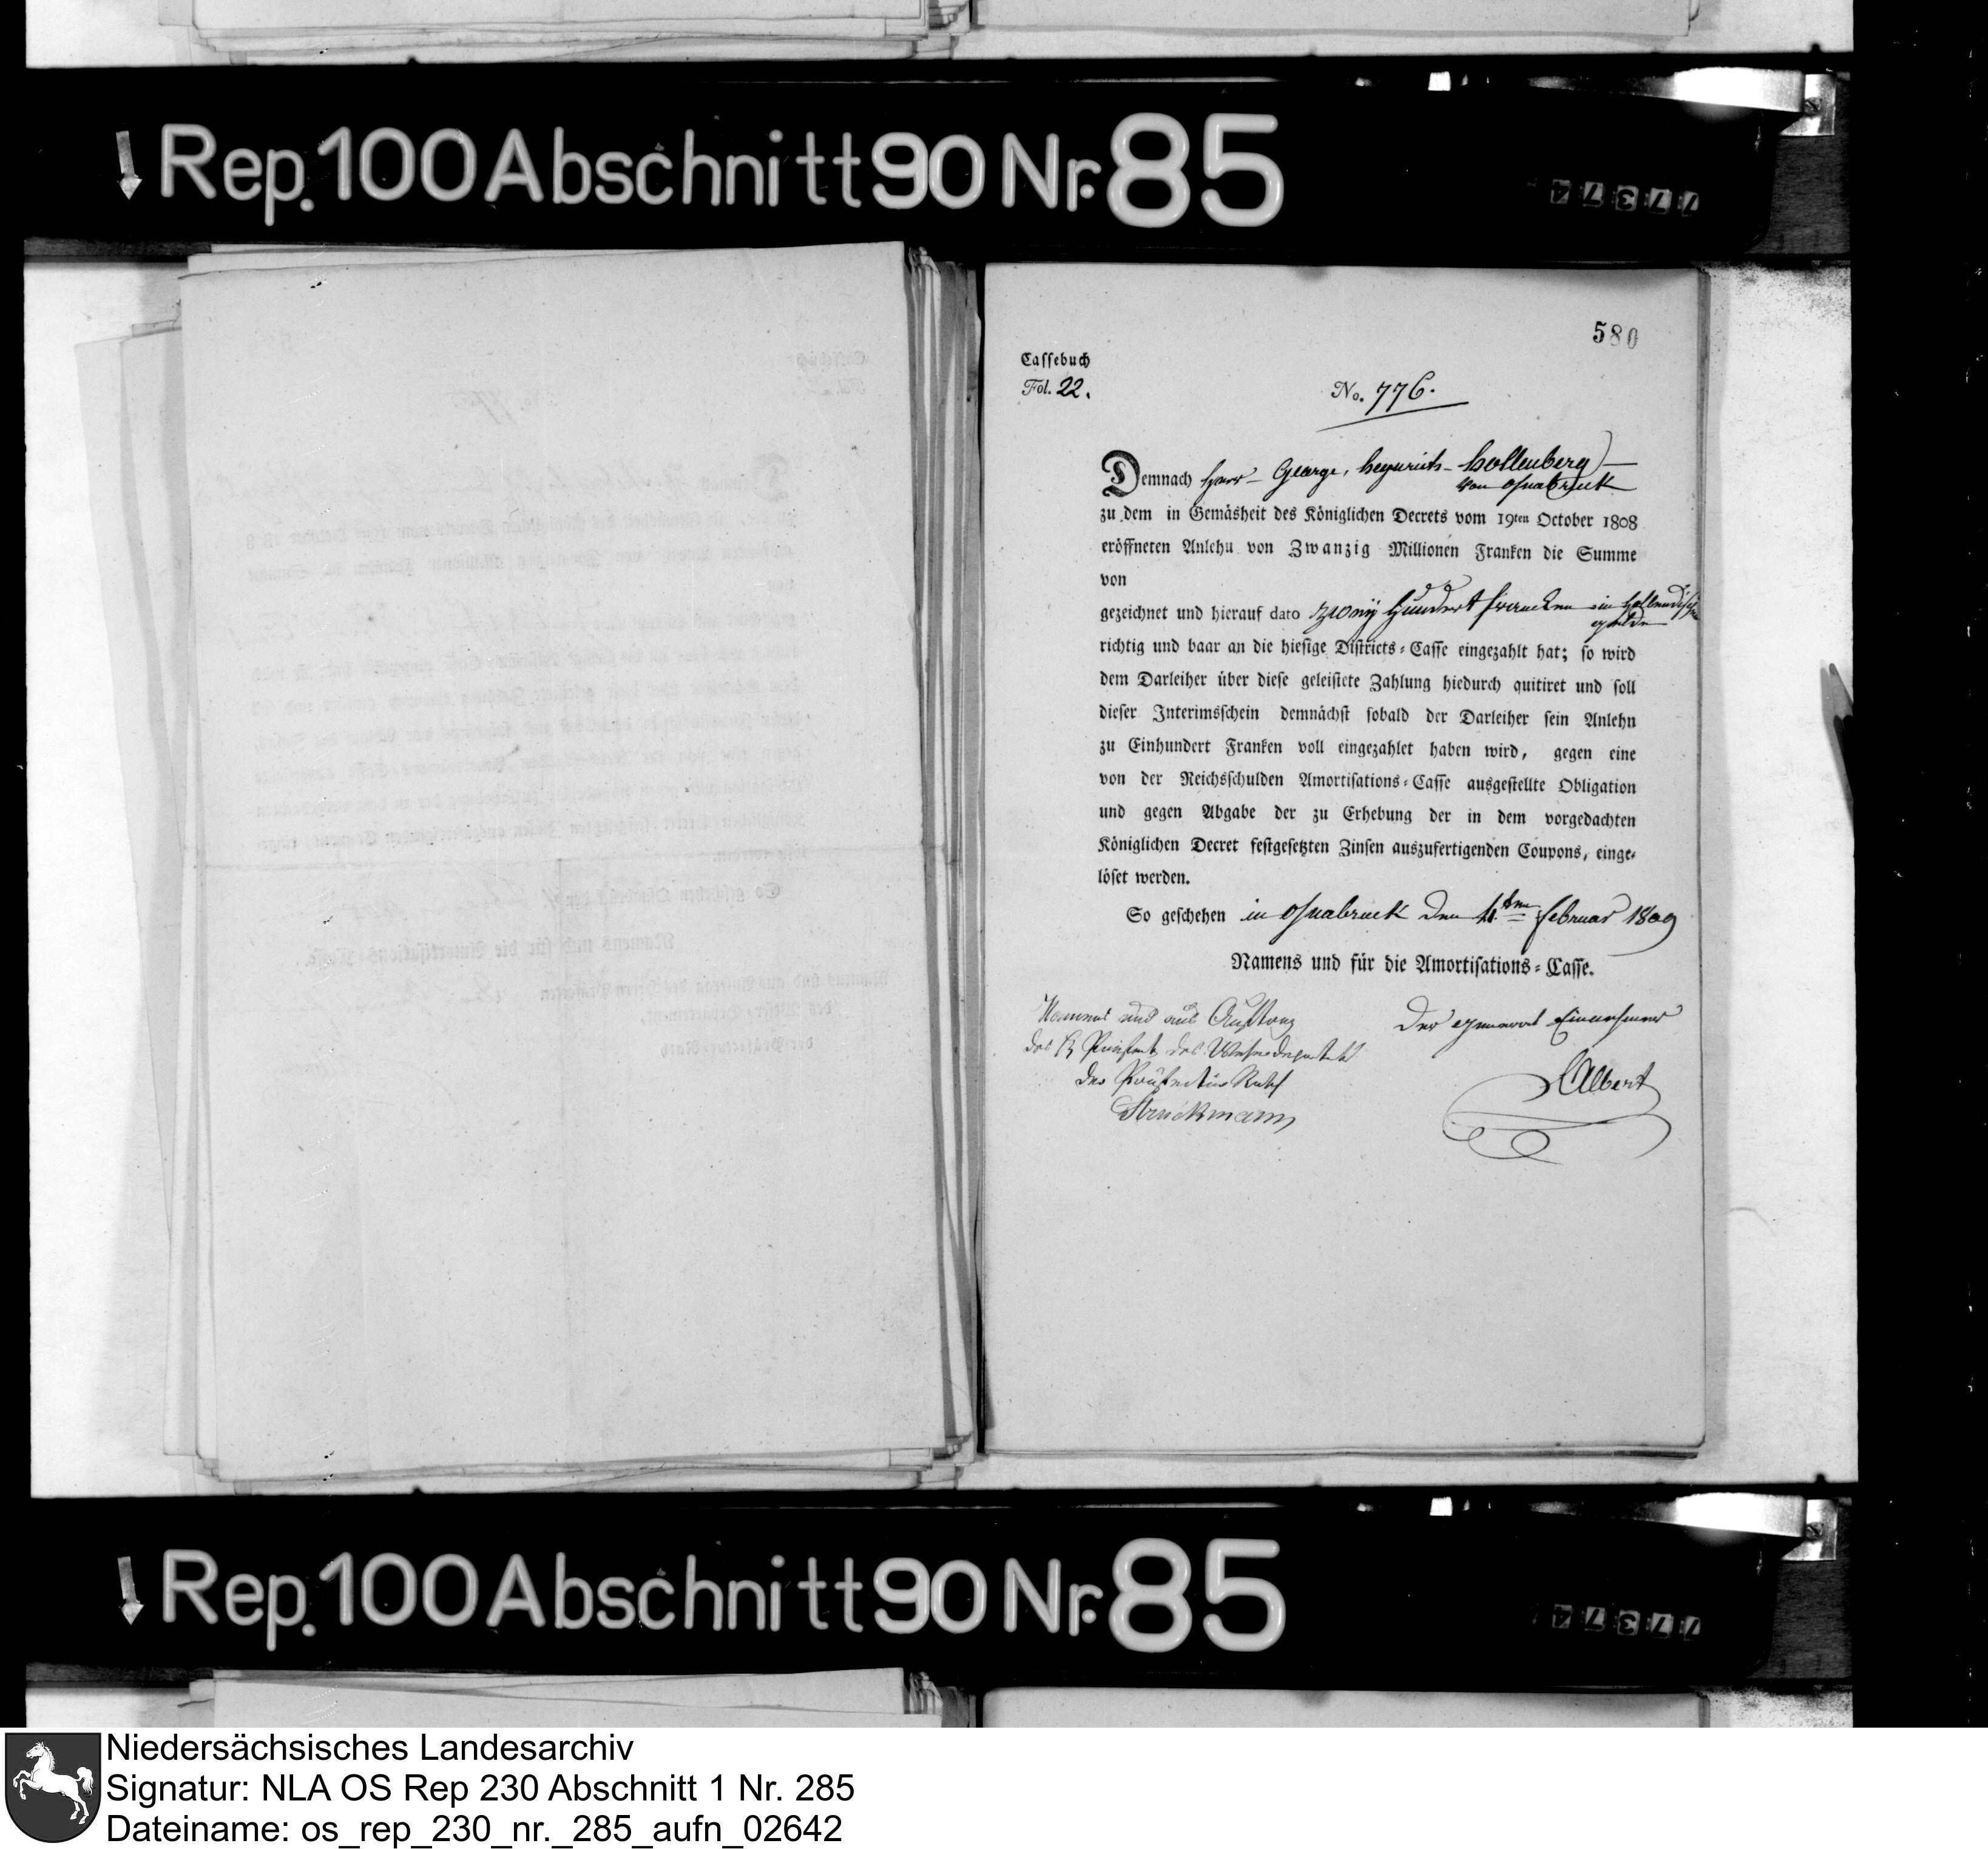 Rep. 100 Abschnitt 90 Nr. 85
77374
580
Cassebuch
Fol. 22.
No. 776.
Demnach Herr George, Heynrich Hollenberg
von Osnabruck
zu dem in Gemäsheit des Königlichen Decrets vom 19ten October 1808
eröffneten Anlehn von Zwanzig Millionen Franken die Summe
von
gezeichnet und hierauf dato zweÿ Hundert francken in Hollendische
gelde
richtig und baar an die hiesige Districts-Casse eingezahlt hat; so wird
dem Darleiher über diese geleistete Zahlung hiedurch quitiret und soll
dieser Interimsschein demnächst sobald der Darleiher sein Anlehn
zu Einhundert Franken voll eingezahlet haben wird, gegen eine
von der Reichsschulden Amortisations-Casse ausgestellte Obligation
und gegen Abgabe der zu Erhebung der in dem vorgedachten
Königlichen Decret festgesetzten Zinsen auszufertigenden Coupons, einge-
löset werden.
So geschehen in Osnabruck den 4ten februar 1809
Namens und für die Amortisations-Casse.
Namens und aus Auftrag
des H Präfect des Weserdepartets
der Präfectur Rath
Struckmann
Der general Einnehmer
Albert
Rep. 100 Abschnitt 90 Nr. 85
77374
Niedersächsisches Landesarchiv
Signatur: NLA OS Rep 230 Abschnitt 1 Nr. 285
Dateiname: os_rep_230_nr._285_aufn_02642